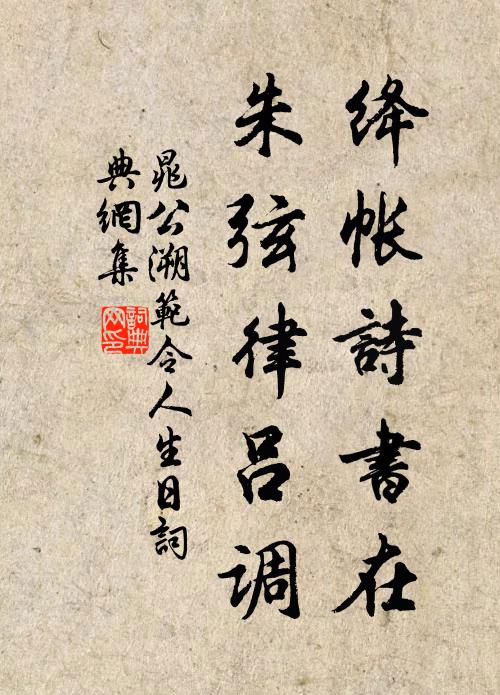 绛帐詩書在
朱弦律呂调
晁公溯範令人生日詞
典網集
詞典
网印